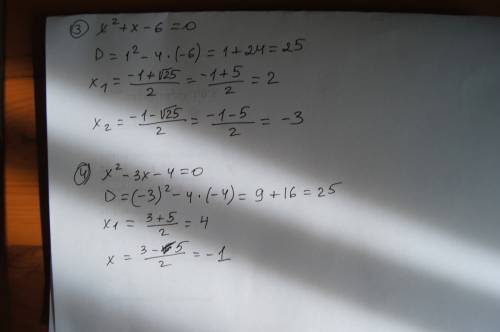 ③ x² + x - 6 = 0
D = 1² - 4 · (-6) = 1 + 24 = 25
x₁ = (-1 + √25)/2 = (-1 + 5)/2 = 2
x₂ = (-1 - √25)/2 = (-1 - 5)/2 = -3
④ x² - 3x - 4 = 0
D = (-3)² - 4 · (-4) = 9 + 16 = 25
x₁ = (3 + 5)/2 = 4
x = (3 - 5)/2 = -1